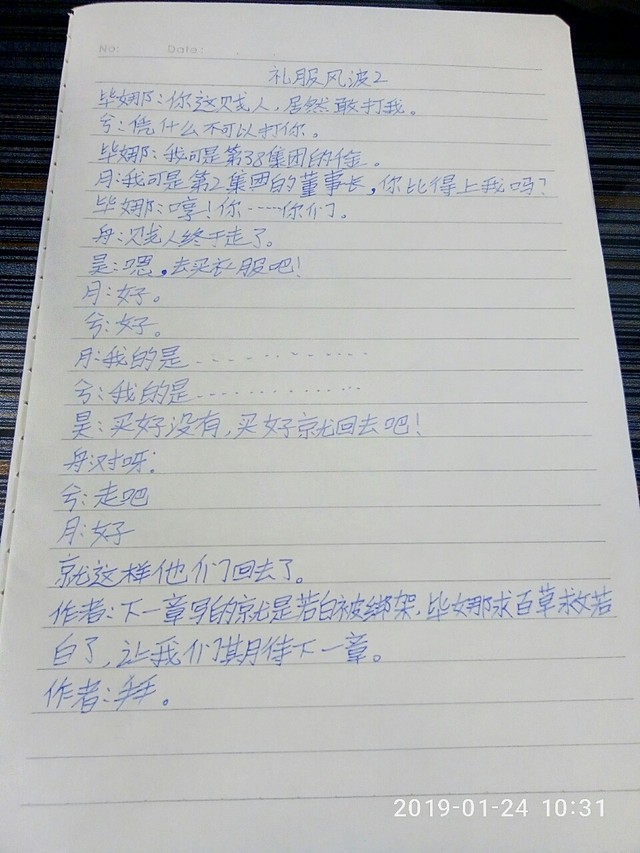 No:   Date:
礼服风波2
毕娜:你这贱人,居然敢打我。
兮:凭什么不可以打你。
毕娜:我可是第38集团的金。
月:我可是第2集团的董事长,你比得上我吗?
毕娜:哼!你……你们。
舟:贱人终于走了。
昊:嗯。去买礼服吧!
月:好。
兮:好。
月:我的是…………
兮:我的是…………
昊:买好没有,买好就回去吧!
舟:对呀:
兮:走吧
月:好
就这样他们回去了。
作者:下一章写的就是若白被绑架,毕娜求百草救若
白了,让我们期待下一章。
作者:。
2019-01-24 10:31